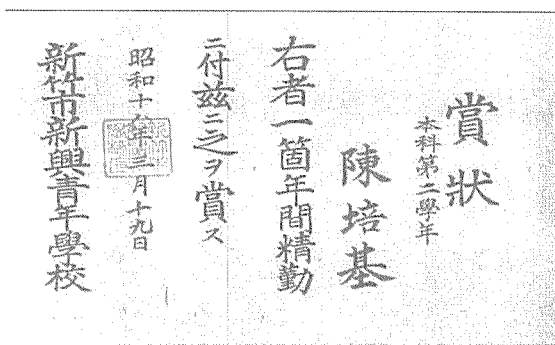 賞狀
本科第二學年
陳培基
右者一箇年間精勤
ニ付茲ニ之ヲ賞ス
昭和十年三月十九日
新竹市新興青年學校